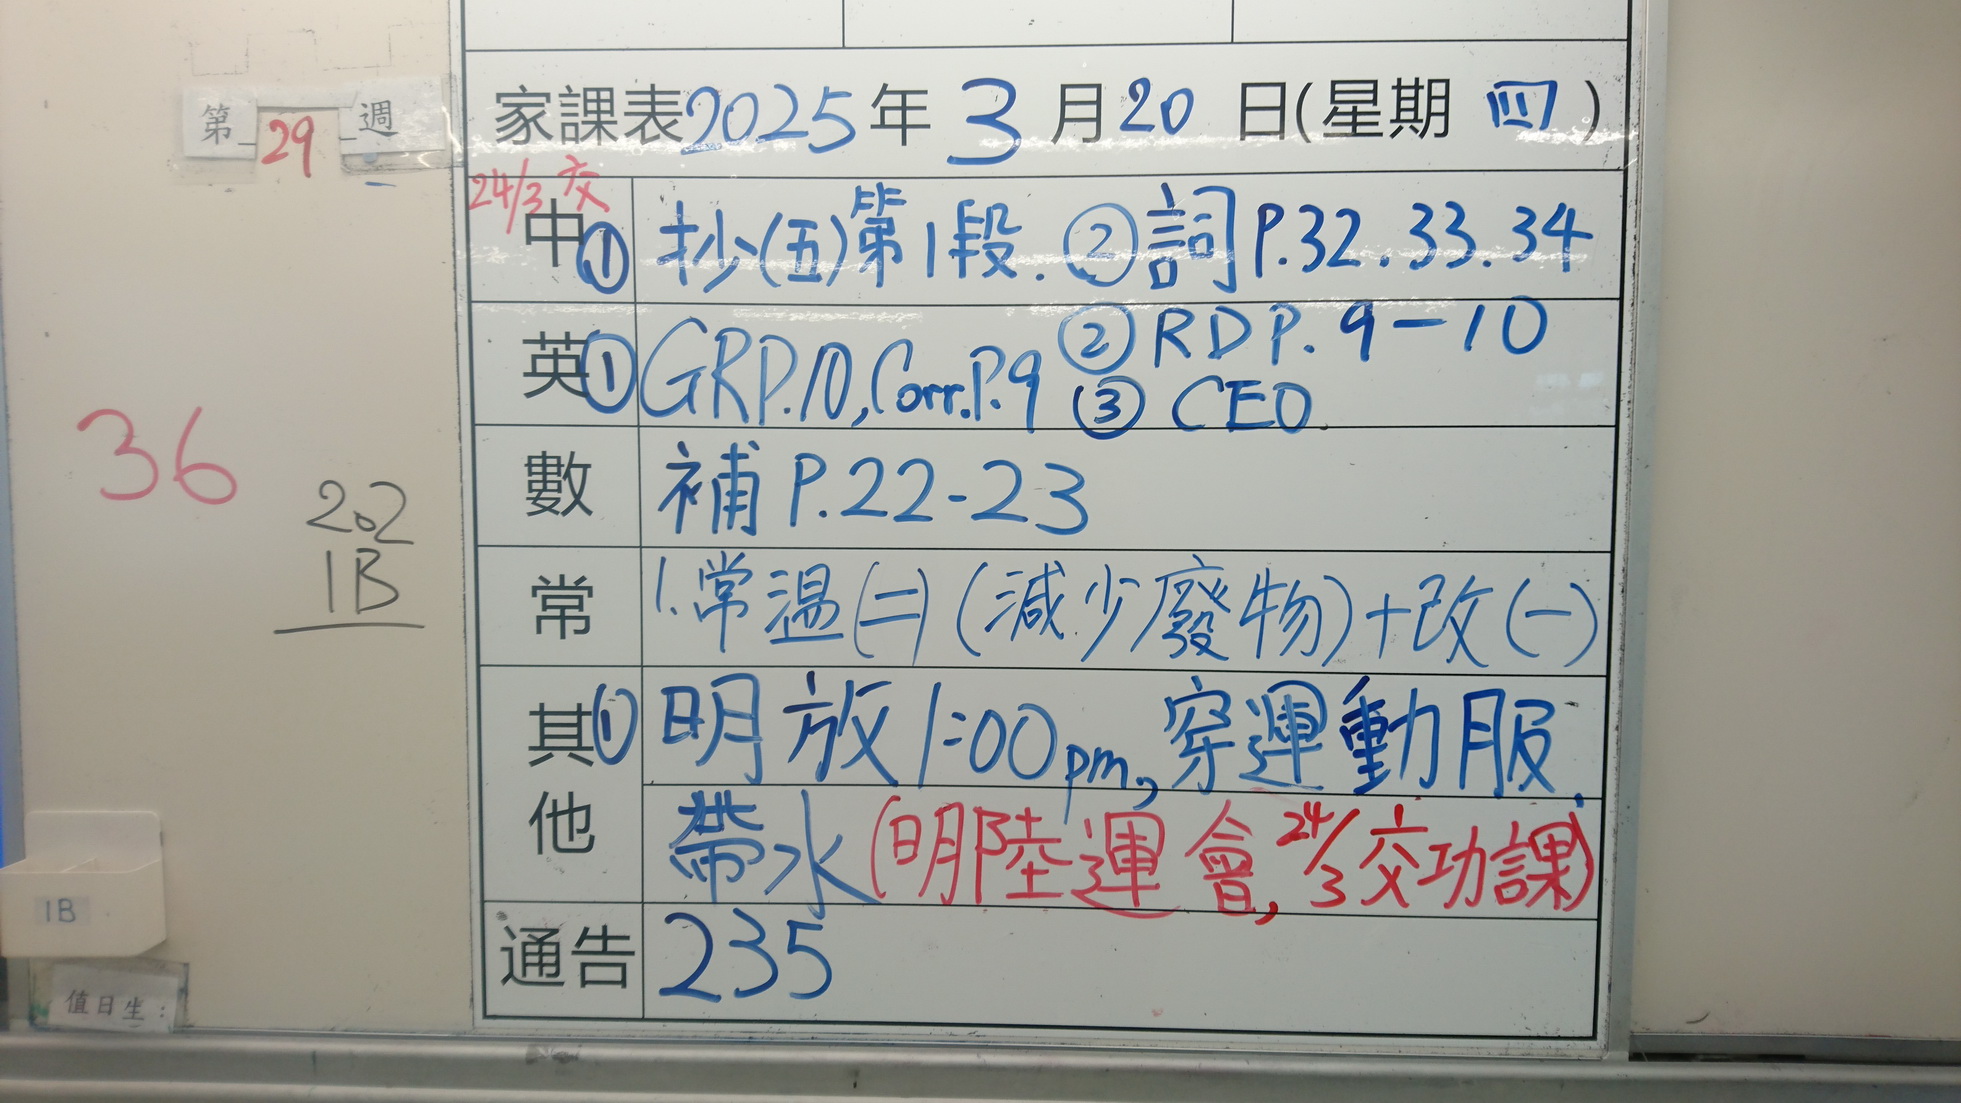 第 29 週
家課表2025年3月20日(星期四)
24/3 交
中① 抄(五)第1段. ②詞P.32.33.34
英①GRP.10,Corr.P.9 ②RDP.9-10
③ CEO.
數 補P.22-23
常 1.常溫(二)(減少廢物)+改(一)
其他 ①明放1:00pm,穿運動服,
帶水(明陸運會,24/3交功課)
通告 235
36
2.2
1B
1B
值日生: